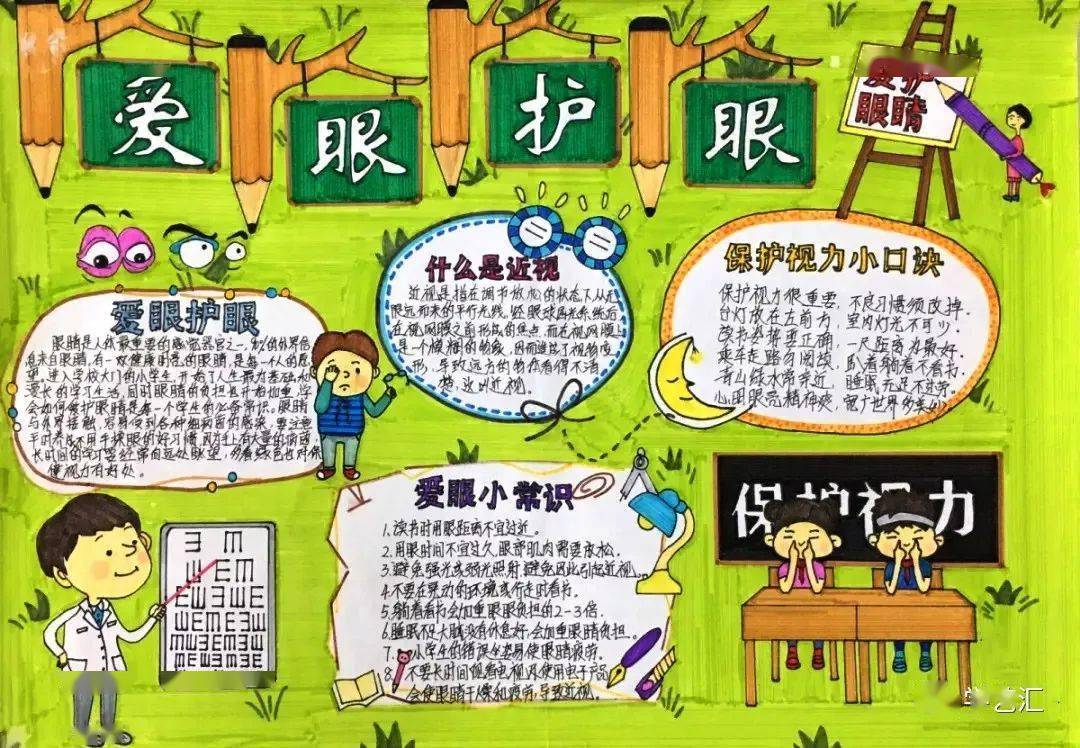 爱眼护眼
爱护
眼睛
爱眼护眼
眼睛是人体最重要的感觉器官之一,
息来自眼睛,有一双健康明亮的眼睛,是每一个人的愿
望。进入学校大门的小学生,开始了人生最为基础和
要长的学习生活,同时眼睛的负担也开始加重,学
会如何保护眼睛是每一个学生的必备常识。眼睛
与外界接触,容易受到各种细病菌的感染,要注意
平时养成不用手揉眼的好习惯,因为手上有大量的病菌,
长时间的学习要经常向远处眺望,多看绿色也对保
健视力有好处。
什么是近视
近视是指在调节放松的状态下,从无
限远而来的平行光线,经眼球屈光系统后
在视网膜之前形成的焦点,而在视网膜上
是一个模糊的物象,因而造成了视物变
形,导致远方的物在看得不清
楚,这叫近视。
保护视力小口诀
保护视力很重要,不良习惯须改掉。
台灯放在左前方,室内灯光不可少。
读书姿势要正确,一尺距离为最好。
乘车走路勿阅读,趴着躺着不看书。
青山绿水常亲近,睡眠充足不疲劳。
心明眼亮精神爽,宽广世界多美妙。
爱眼小常识
1.读书时用眼距离不宜过近。
2.用眼时间不宜过久,眼部肌肉需要放松。
3.避免强光或弱光照射,避免因此引起近视。
4.不要在晃动的环境或行走时看书。
5.躺着看书会加重眼眼负担的2-3倍。
6.睡眠不足大脑没有休息好,会加重眼睛负担。
7.小学生的错误坐姿易使眼睛疲劳。
8.不要长时间观看电视以使用电子产品
会使眼睛干燥和疲劳,导致近视。
保护视力
Ǝ M
W E M
学艺汇